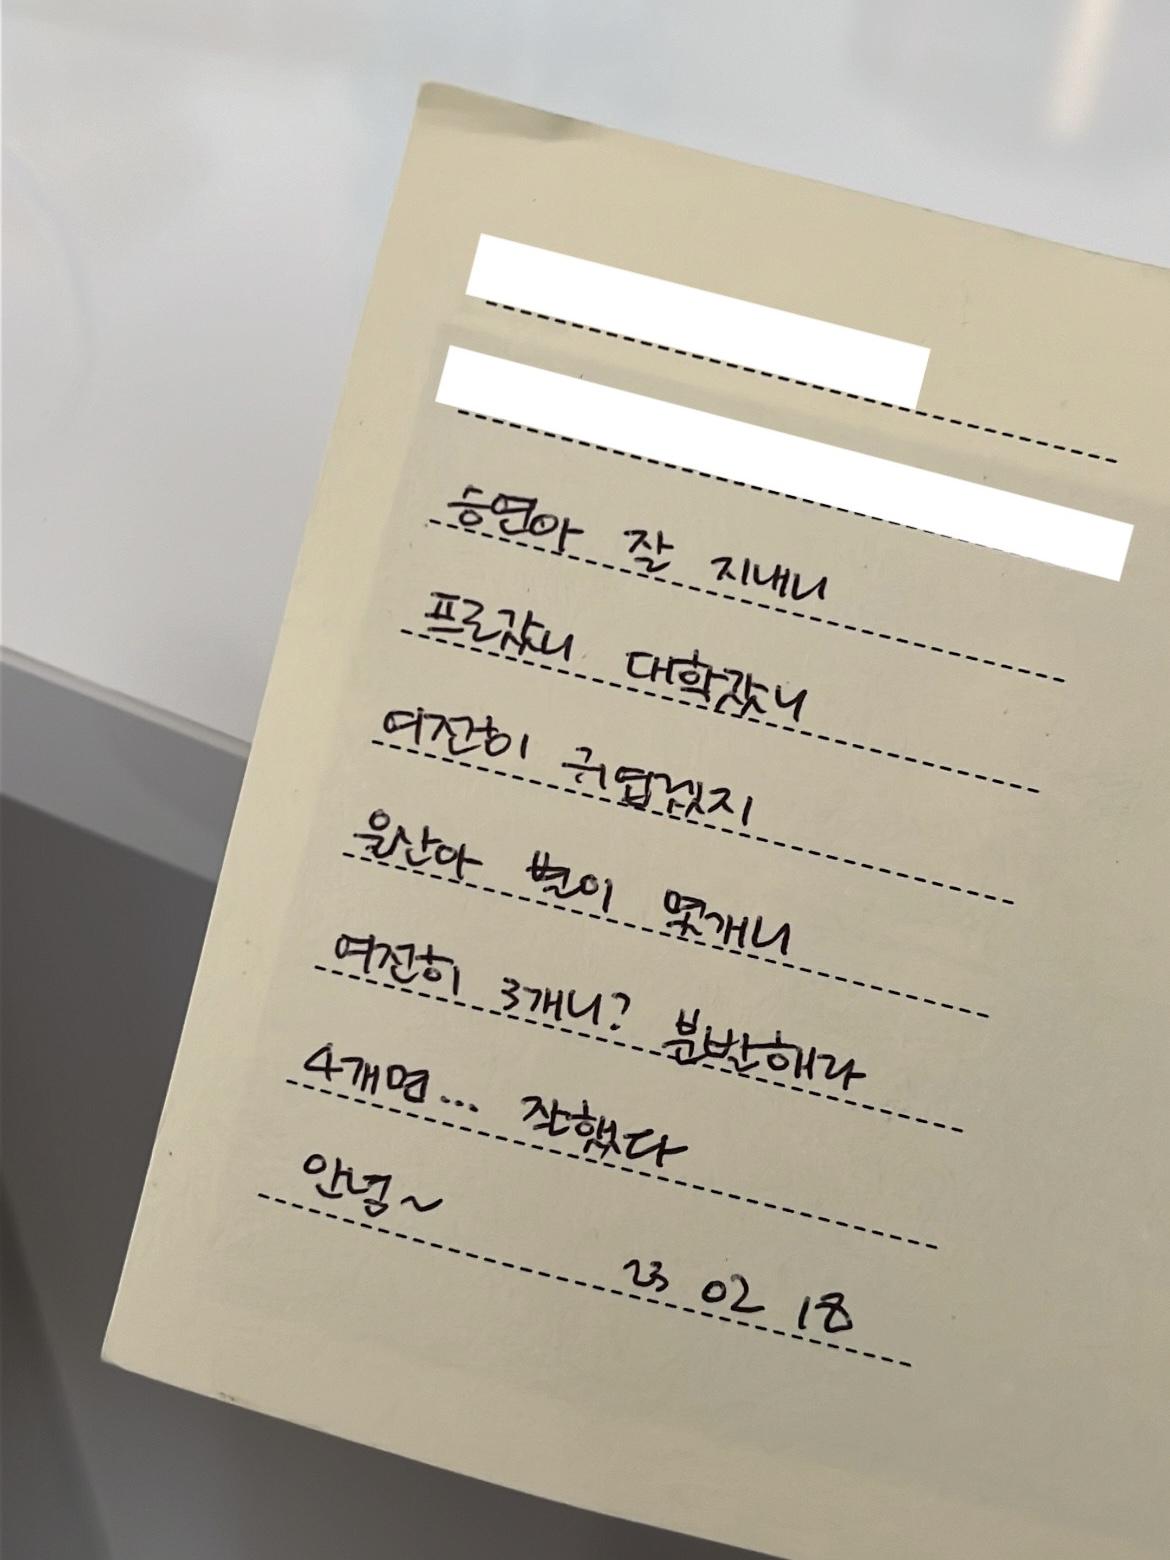 승연아 잘 지내니
프로갔니 대학갔니
여전히 귀엽겠지
울산아 별이 몇개니
여전히 3개니? 분발해라
4개면... 잘했다
안녕~
23 02 18